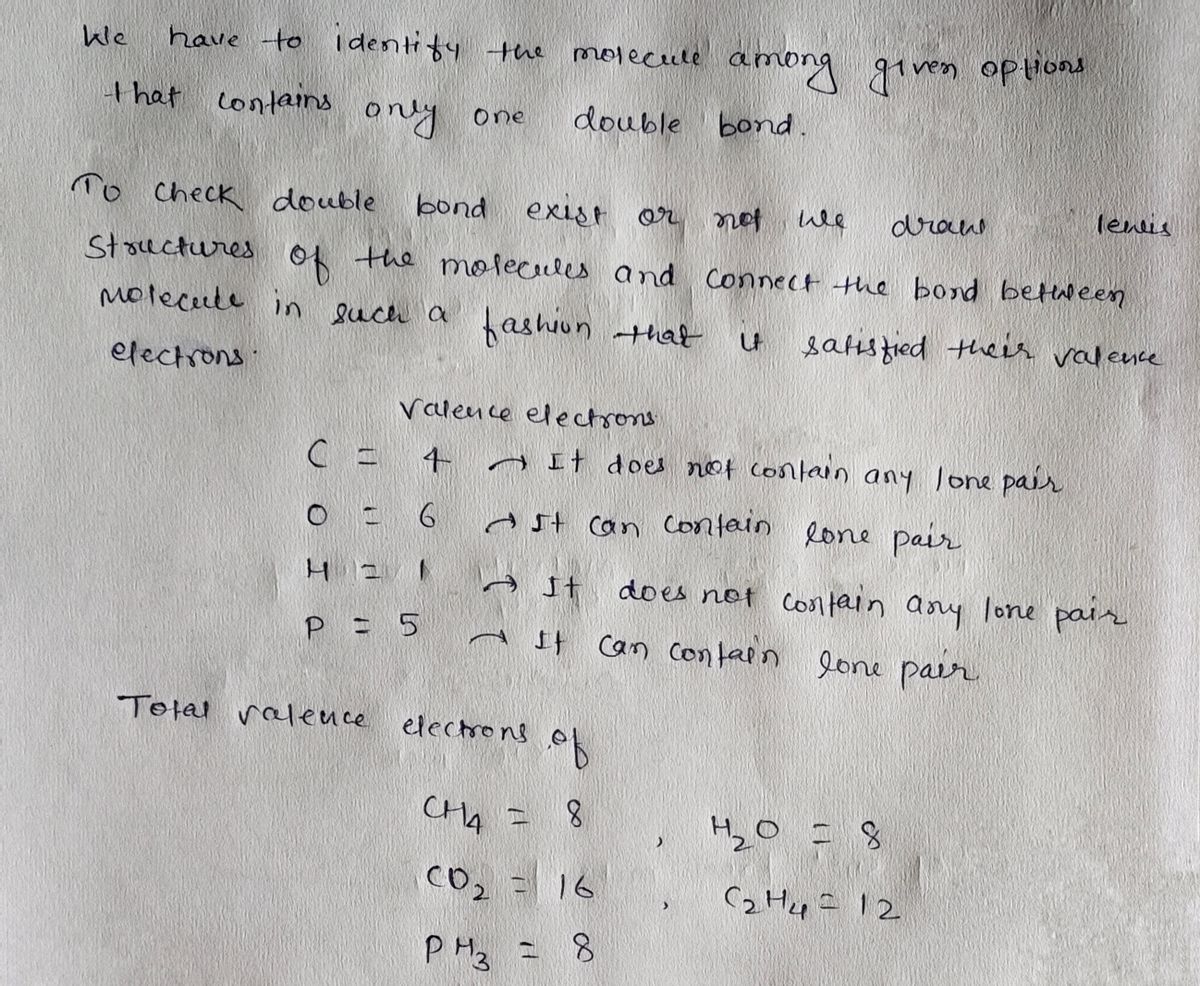 We have to identify the molecule among given options
that contains only one double bond.
To check double bond exist or not we draw lewis
Structures of the molecules and connect the bond between
Molecule in such a fashion that it satisfied their valence
electrons.
Valence electrons
C = 4 → It does not contain any lone pair
O = 6 → It can contain lone pair
H = 1 → It does not contain any lone pair
P = 5 → It can contain lone pair
Total valence electrons of
CH₄ = 8 , H₂O = 8
CO₂ = 16 , C₂H₄ = 12
PH₃ = 8